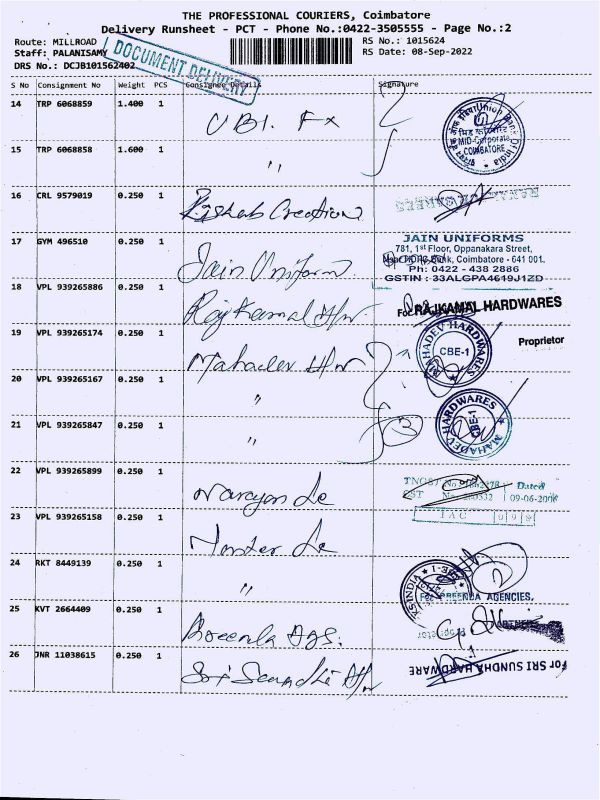 THE PROFESSIONAL COURIERS, Coimbatore
Delivery Runsheet - PCT - Phone No.:0422-3505555 - Page No.:2
Route: MILLROAD
RS No.: 1015624
Staff: PALANISAMY
RS Date: 08-Sep-2022
DRS No.: DCJB101562402
DOCUMENT DELIVERY
S No Consignment No Weight PCS Consignee Details Signature
14 TRP 6068859 1.400 1 UBI. Fx
Union Bank Of India
MID-Corporate
COIMBATORE
15 TRP 6068858 1.600 1 "
16 CRL 9579019 0.250 1 Rishab Creation
17 GYM 496510 0.250 1 Jain Uniform
JAIN UNIFORMS
781, 1st Floor, Oppanakara Street,
Bank, Coimbatore - 641 001.
Ph: 0422 - 438 2886
GSTIN : 33ALGPA4619J1ZD
18 VPL 939265886 0.250 1 Raj Kamal H/w
For RAJKAMAL HARDWARES
Proprietor
19 VPL 939265174 0.250 1 Mahadev H/w
MAHADEV HARDWARES
CBE-1
20 VPL 939265167 0.250 1 "
21 VPL 939265847 0.250 1 " 3
MAHADEV HARDWARES
CBE-1
22 VPL 939265899 0.250 1 Narayan
TNGST No.
Dated
CST No.
09-06-2008
TAC 098
23 VPL 939265158 0.250 1
24 RKT 8449139 0.250 1 "
2
25 KVT 2664409 0.250 1 Preenla Ags.
For PREENLA AGENCIES,
26 JNR 11038615 0.250 1 Sri Sundha H/w
For SRI SUNDHA HARDWARE